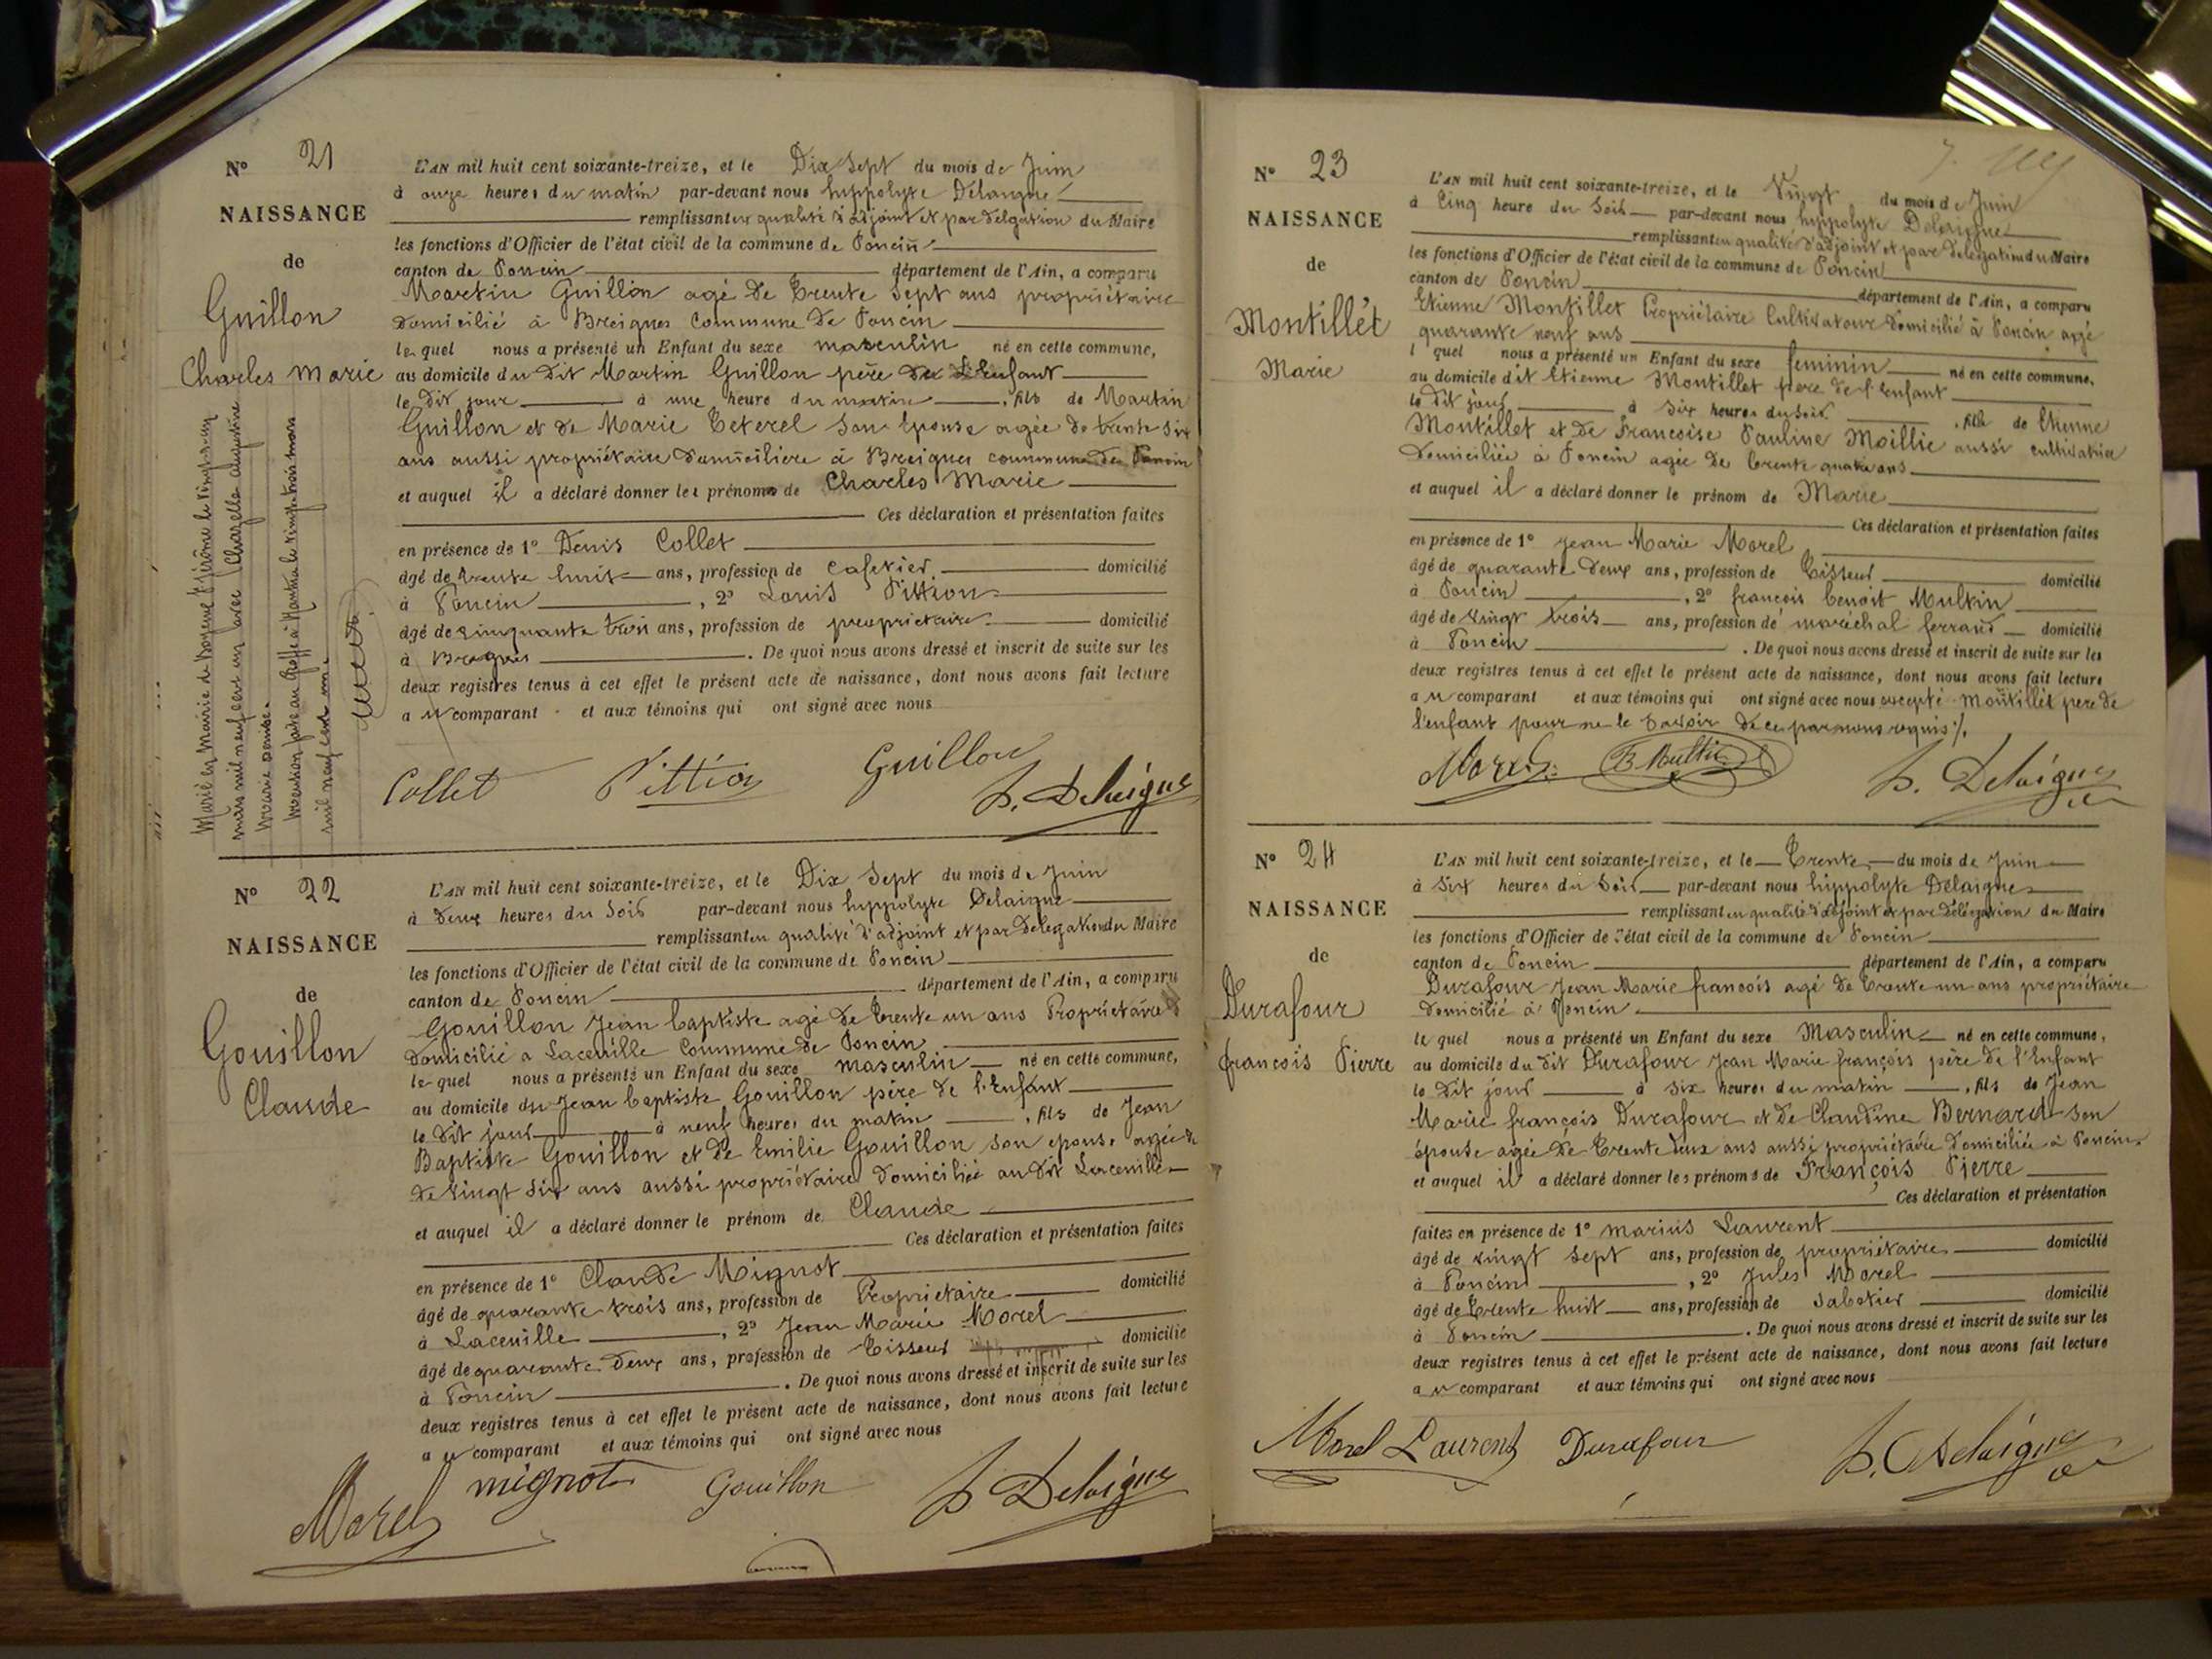 N° 21
NAISSANCE
de
Guillon
Charles Marie
L'AN mil huit cent soixante-treize, et le Dix Sept du mois de Juin
à onze heures du matin par-devant nous hyppolyte Delaigue
remplissant en qualité d'adjoint et par délégation du Maire
les fonctions d'Officier de l'état civil de la commune de Poncin
canton de Poncin département de l'Ain, a comparu
Martin Guillon agé de Trente Sept ans propriétaire
domicilié à Breignes Commune de Poncin
lequel nous a présenté un Enfant du sexe masculin né en cette commune,
au domicile du dit Martin Guillon père de l'Enfant
le dit jour à une heure du matin, fils de Martin
Guillon et de Marie Teterel son Epouse agée de trente six
ans aussi propriétaire domiciliere à Breignes commune de Poncin
et auquel il a déclaré donner les prénoms de Charles Marie
Ces déclaration et présentation faites
en présence de 1° Denis Collet
âgé de trente huit ans, profession de Cafetier domicilié
à Poncin, 2° Louis Pittion
âgé de cinquante trois ans, profession de propriétaire domicilié
à Bregnes. De quoi nous avons dressé et inscrit de suite sur les
deux registres tenus à cet effet le présent acte de naissance, dont nous avons fait lecture
au comparant et aux témoins qui ont signé avec nous
Collet Pittion Guillon h. Delaigue
Marié en Mairie de
mars mil neuf cent un avec Chazelle
Mention faite au Greffe à Nantua le vingt trois mars
mil neuf cent un
N° 22
NAISSANCE
de
Gouillon
Claude
L'AN mil huit cent soixante-treize, et le Dix Sept du mois de Juin
à deux heures du Soir par-devant nous hyppolyte Delaigue
remplissant en qualité d'adjoint et par délégation du Maire
les fonctions d'Officier de l'état civil de la commune de Poncin
canton de Poncin département de l'Ain, a comparu
Gouillon Jean baptiste agé de trente un ans Propriétaire
domicilié a Laceuille Commune de Poncin
lequel nous a présenté un Enfant du sexe masculin né en cette commune,
au domicile du Jean baptiste Gouillon père de l'Enfant
le dit jour à neuf heures du matin, fils de Jean
Baptiste Gouillon et de Emilie Gouillon son epouse agée de
de vingt six ans aussi propriétaire domiciliée au dit Laceuille
et auquel il a déclaré donner le prénom de Claude
Ces déclaration et présentation faites
en présence de 1° Claude Mignot
âgé de quarante trois ans, profession de Propriétaire domicilié
à Laceuille, 2° Jean Marie Morel
âgé de quarante deux ans, profession de Tisseur domicilié
à Poncin. De quoi nous avons dressé et inscrit de suite sur les
deux registres tenus à cet effet le présent acte de naissance, dont nous avons fait lecture
au comparant et aux témoins qui ont signé avec nous
Morel mignot Gouillon h. Delaigue
N° 23
NAISSANCE
de
Montillet
Marie
L'AN mil huit cent soixante-treize, et le Vingt du mois de Juin
à Cinq heure du Soir par-devant nous hyppolyte Delaigue
remplissant en qualité d'adjoint et par délégation du Maire
les fonctions d'Officier de l'état civil de la commune de Poncin
canton de Poncin département de l'Ain, a comparu
Etienne Montillet Propriétaire Cultivateur domicilié à Poncin agé
quarante neuf ans
l quel nous a présenté un Enfant du sexe feminin né en cette commune,
au domicile dit Etienne Montillet père de l'Enfant
le dit jour à six heures du soir, fille de Etienne
Montillet et de Francoise Pauline Moillie aussi cultivatrice
domiciliée a Poncin agée de trente quatre ans
et auquel il a déclaré donner le prénom de Marie
Ces déclaration et présentation faites
en présence de 1° Jean Marie Morel
âgé de quarante deux ans, profession de Tisseur domicilié
à Poncin, 2° françois benoit Multin
âgé de vingt trois ans, profession de maréchal ferrand domicilié
à Poncin. De quoi nous avons dressé et inscrit de suite sur les
deux registres tenus à cet effet le présent acte de naissance, dont nous avons fait lecture
au comparant et aux témoins qui ont signé avec nous excepté Montillet père de
l'enfant pour ne le savoir de ce par nous requis
Morel B. Multin h. Delaigue
N° 24
NAISSANCE
de
Durafour
francois Pierre
L'AN mil huit cent soixante-treize, et le Trente du mois de Juin
à Six heures du Soir par-devant nous hippolyte Delaigue
remplissant en qualité d'adjoint et par délégation du Maire
les fonctions d'Officier de l'état civil de la commune de Poncin
canton de Poncin département de l'Ain, a comparu
Durafour Jean Marie francois agé de trente un ans propriétaire
domicilié à Poncin
le quel nous a présenté un Enfant du sexe Masculin né en cette commune,
au domicile du dit Durafour Jean Marie françois père de l'Enfant
le dit jour à six heures du matin, fils de Jean
Marie françois Durafour et de Claudine Bernard son
épouse agée de trente deux ans aussi propriétaire domiciliée à Poncin
et auquel il a déclaré donner les prénoms de François Pierre
Ces déclaration et présentation
faites en présence de 1° Marius Laurent
âgé de vingt sept ans, profession de propriétaire domicilié
à Poncin, 2° Jules Morel
âgé de trente huit ans, profession de Sabotier domicilié
à Poncin. De quoi nous avons dressé et inscrit de suite sur les
deux registres tenus à cet effet le présent acte de naissance, dont nous avons fait lecture
au comparant et aux témoins qui ont signé avec nous
Morel Laurent Durafour h. Delaigue